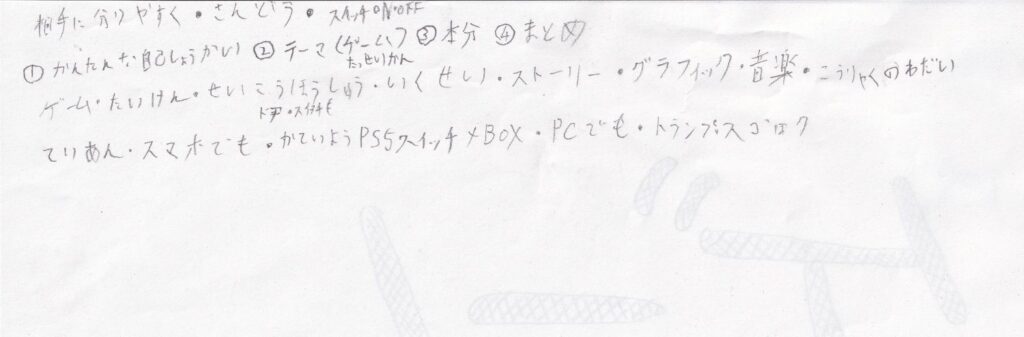 相手に分りやすく・さんどう・スイッチON・OFF
①かんたんな自己しょうかい ②テーマ(ゲーム) ③本分 ④まとめ
たっせいかん
ゲーム・たいけん・せいこうほうしゅう・いくせい・ストーリー・グラフィック・音楽・こうりゃくのわだい
ていあん・スマホでも・かていようPS5スイッチXBOX・PCでも・トランプスゴロク